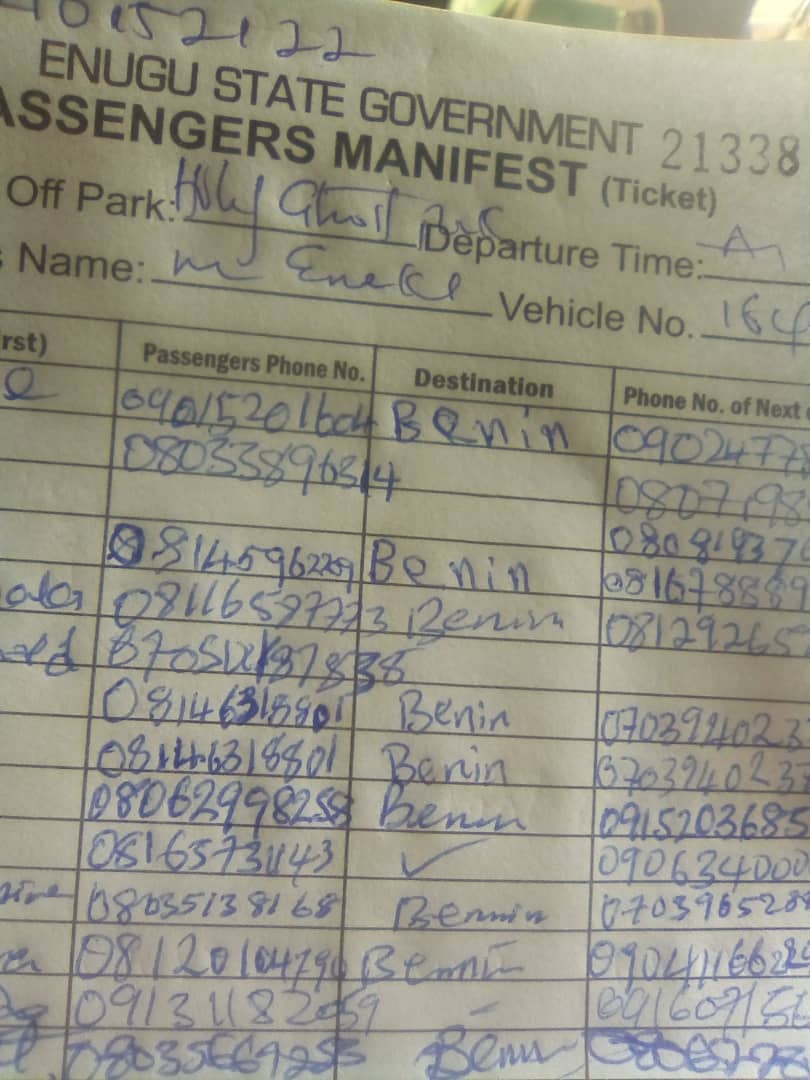 10152122
ENUGU STATE GOVERNMENT 21338
ASSENGERS MANIFEST (Ticket)
Off Park: Holy Ghost Departure Time:
s Name: Eneke Vehicle No. 164
rst) Passengers Phone No. Destination Phone No. of Next
Benin 09024778
08033896314 0807198
08081937
08145962209 Benin 081678889
08116587773 Benin 081292657
08146318801 Benin 070394023
08146318801 Benin 070394023
08062998258 Benin 0915203685
08165731143 ✓ 090634000
08035138168 Bennin 070396528
08120104790 Benin 0904116628
09131182059 - 091607156
08035669253 Benin